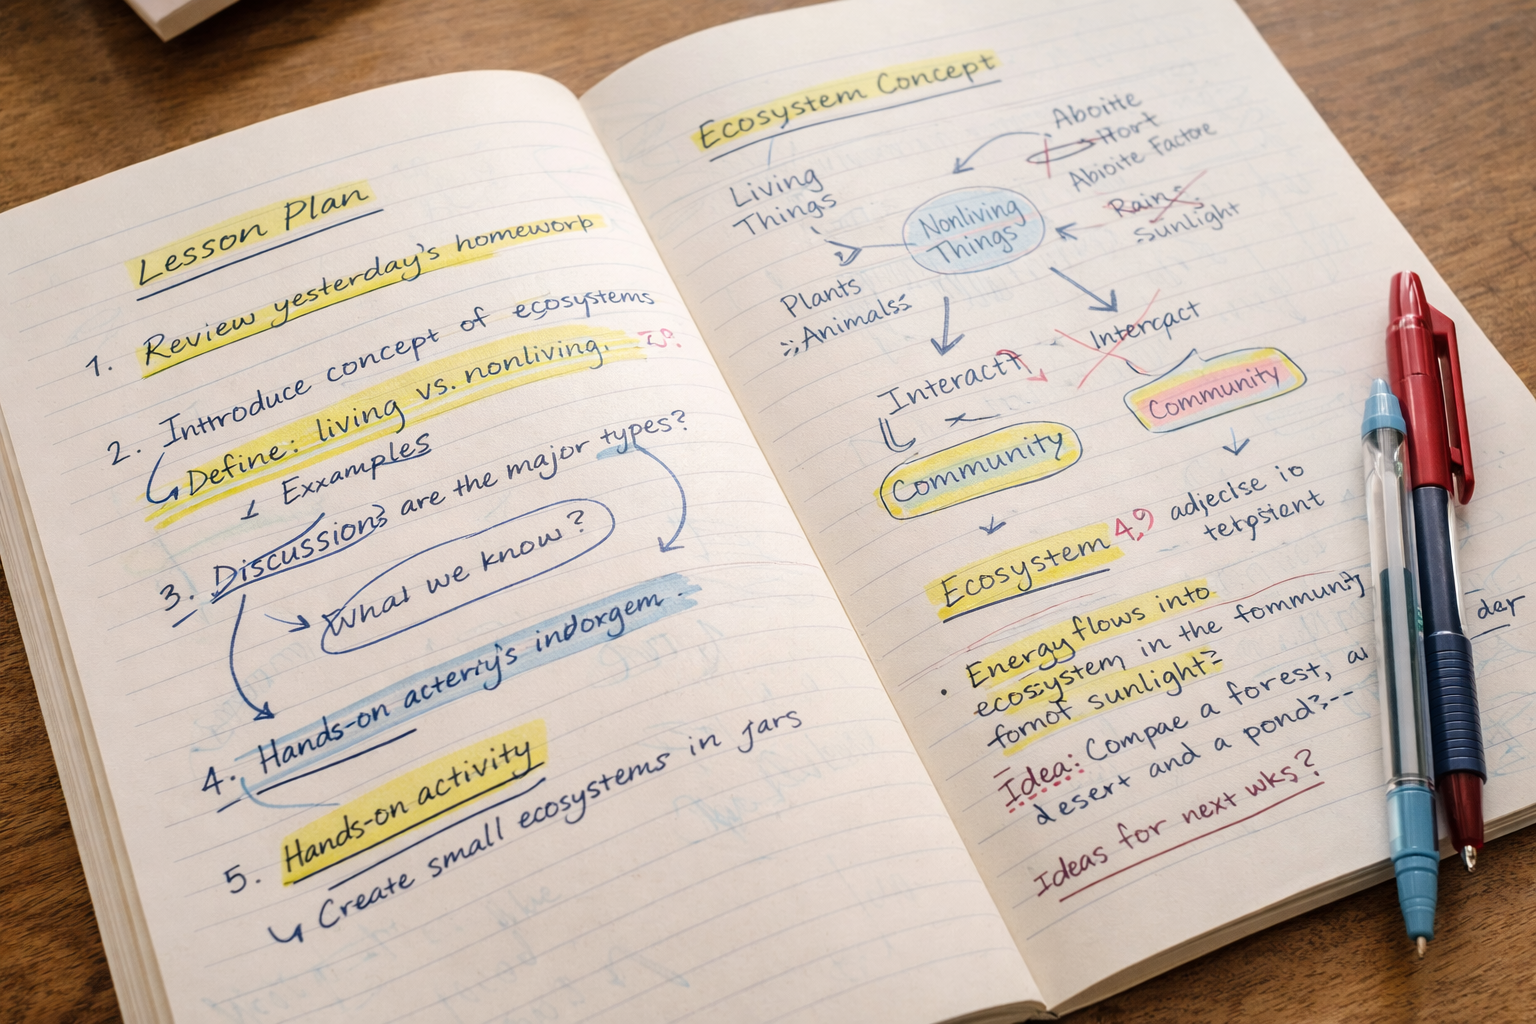 Lesson Plan
1. Review yesterday's homeworp
2. Introduce concept of ecosystems
Define: living vs. nonliving.
Exxamples
3. Discussions are the major types?
What we know?
4. Hands-on acterry's indorgem.
5. Hands-on activity
Create small ecosystems in jars
Ecosystem Concept
Living
Things
Plants
Animals
Nonliving
Things
Aboitte
Hort
Abioite Factore
Rains
Sunlight
Interact
Intercpact
Community
Community
Ecosystem
adjeclse io
Energy flows into
ecosystem in the fommunity
fomot sunlight
Idea: Compae a forest,
desert and a pond?--
der
Ideas for next wks?